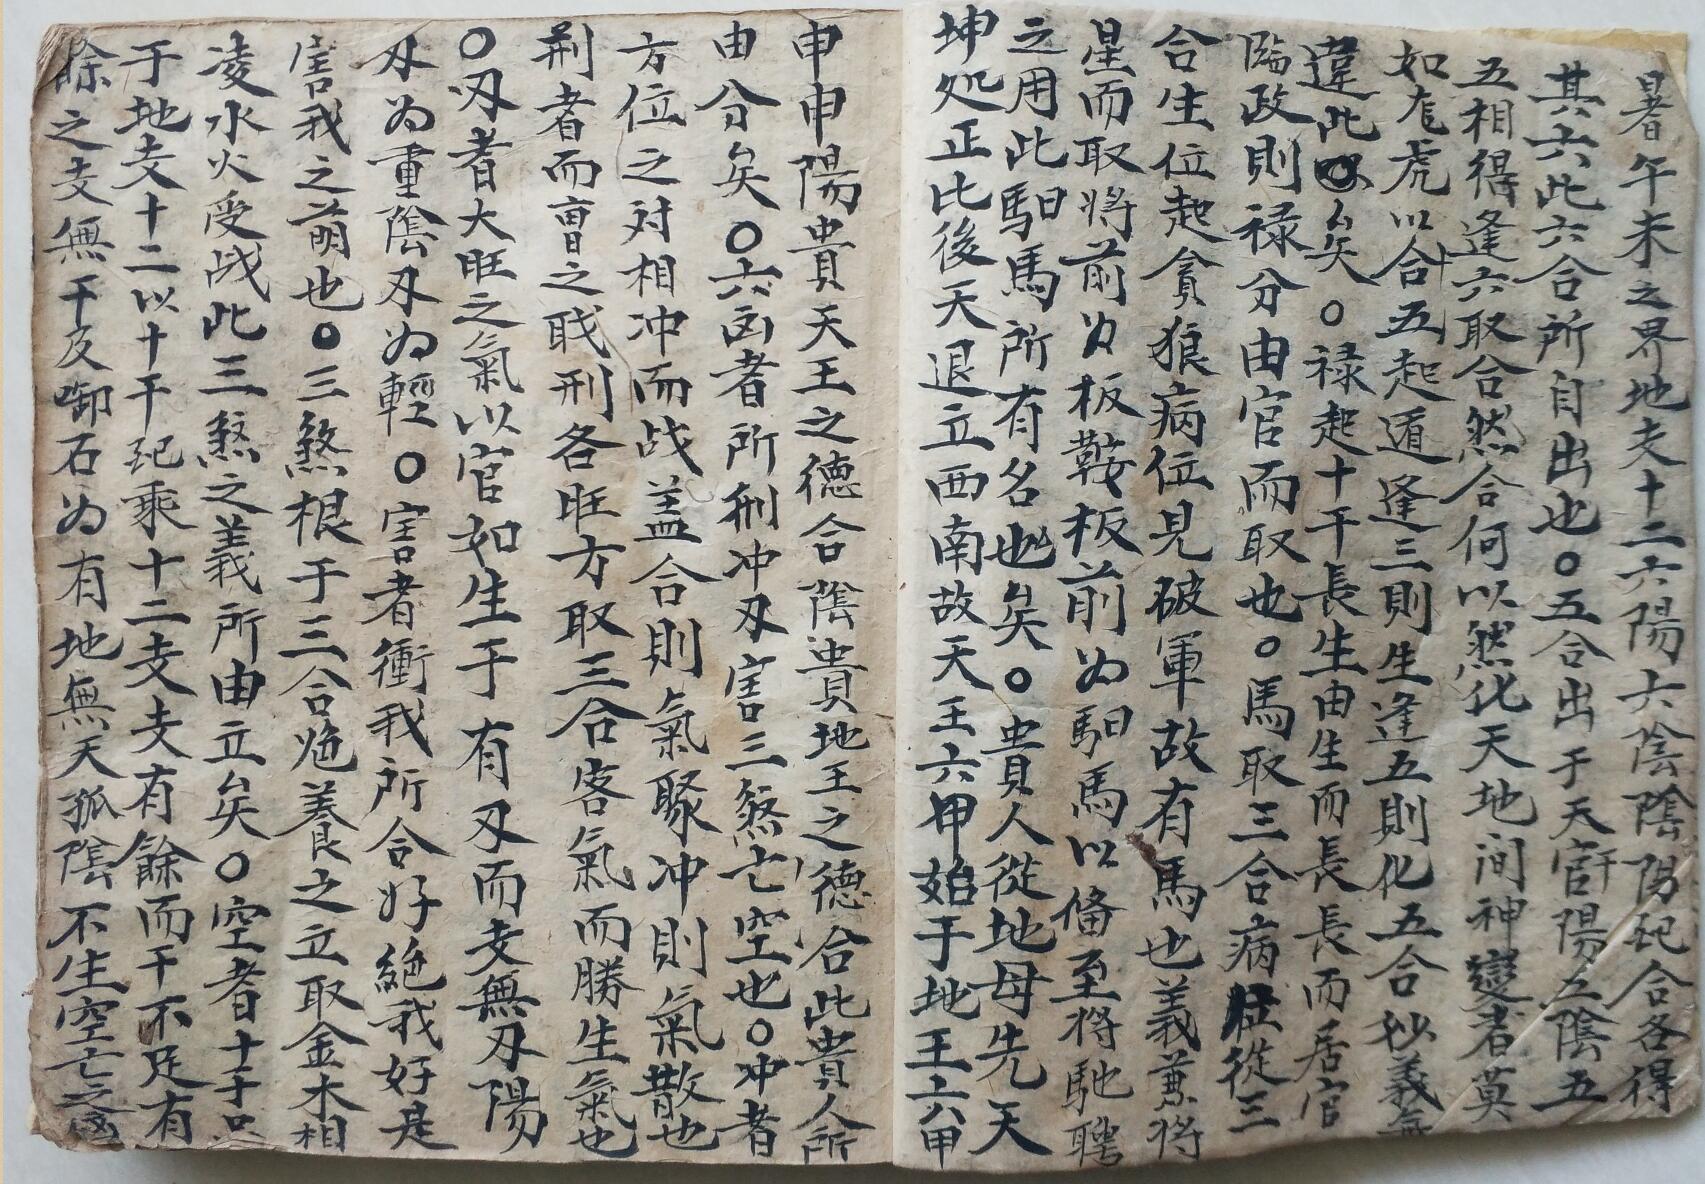 暑午未之界地支十二六陽六陰陰陽配合各得
其六此六合所自出也〇五合出于天官干陽五陰五
五相得逢六取合然合何以然化天地间神變者莫
如龙虎以合五起遁逢三則生逢五則化五合妙義無
違此矣〇禄起十干長生由生而長長而居官
臨政則禄分由官而取也〇馬取三合病位從三
合生位起貪狼病位見破軍故有馬也義兼将
星而取将前为板鞍板前为馹馬以俻至将馳聘
之用此馹馬所有名也矣〇貴人從地母先天
坤処正北後天退立西南故天王六甲始于地王六甲
申申陽貴天王之德合陰貴地王之德合此貴人所
由分矣〇六凶者所刑冲刃害三煞亡空也〇冲者
方位之対相冲而战盖合則氣聚冲則氣散也
荆者而冒之戝刑各旺方取三合客氣而勝生氣也
〇刃者大旺之氣以官如生于有刃而支無刃陽
刃为重陰刃为輕〇害者衝我所合好絶我好是
害我之萌也〇三煞根于三合絶养之立取金木相
凌水火受战此三煞之義所由立矣〇空者十干
于地支十二以十干配乘十二支支有餘而干不足有
餘之支無干及啣石为有地無天孤陰不生空亡之